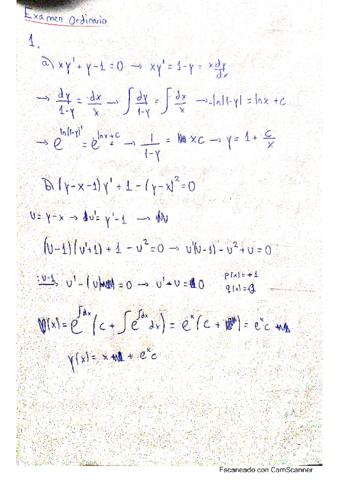 Examen Ordinario
1.
a) xy' + y - 1 = 0 → xy' = 1 - y = x dy/dx
→ dy/(1-y) = dx/x → ∫ dy/(1-y) = ∫ dx/x → -ln|1-y| = lnx + c
→ e^(ln|1-y|) = e^(lnx+c) → 1/(1-y) = xc → y = 1 + c/x
b) (y-x-1)y' + 1 - (y-x)² = 0
u = y - x → u' = y' - 1 →
(u-1)(u'+1) + 1 - u² = 0 → u'(u-1) - u² + u = 0
:u-1 → u' - u = 0 → u' + u = 0 p(x) = +1
q(x) =
(x) = e^(∫dx) (c + ∫ e^(∫dx) dx) = e^x (c + ) = e^x c
y(x) = x + e^x c
Escaneado con CamScanner